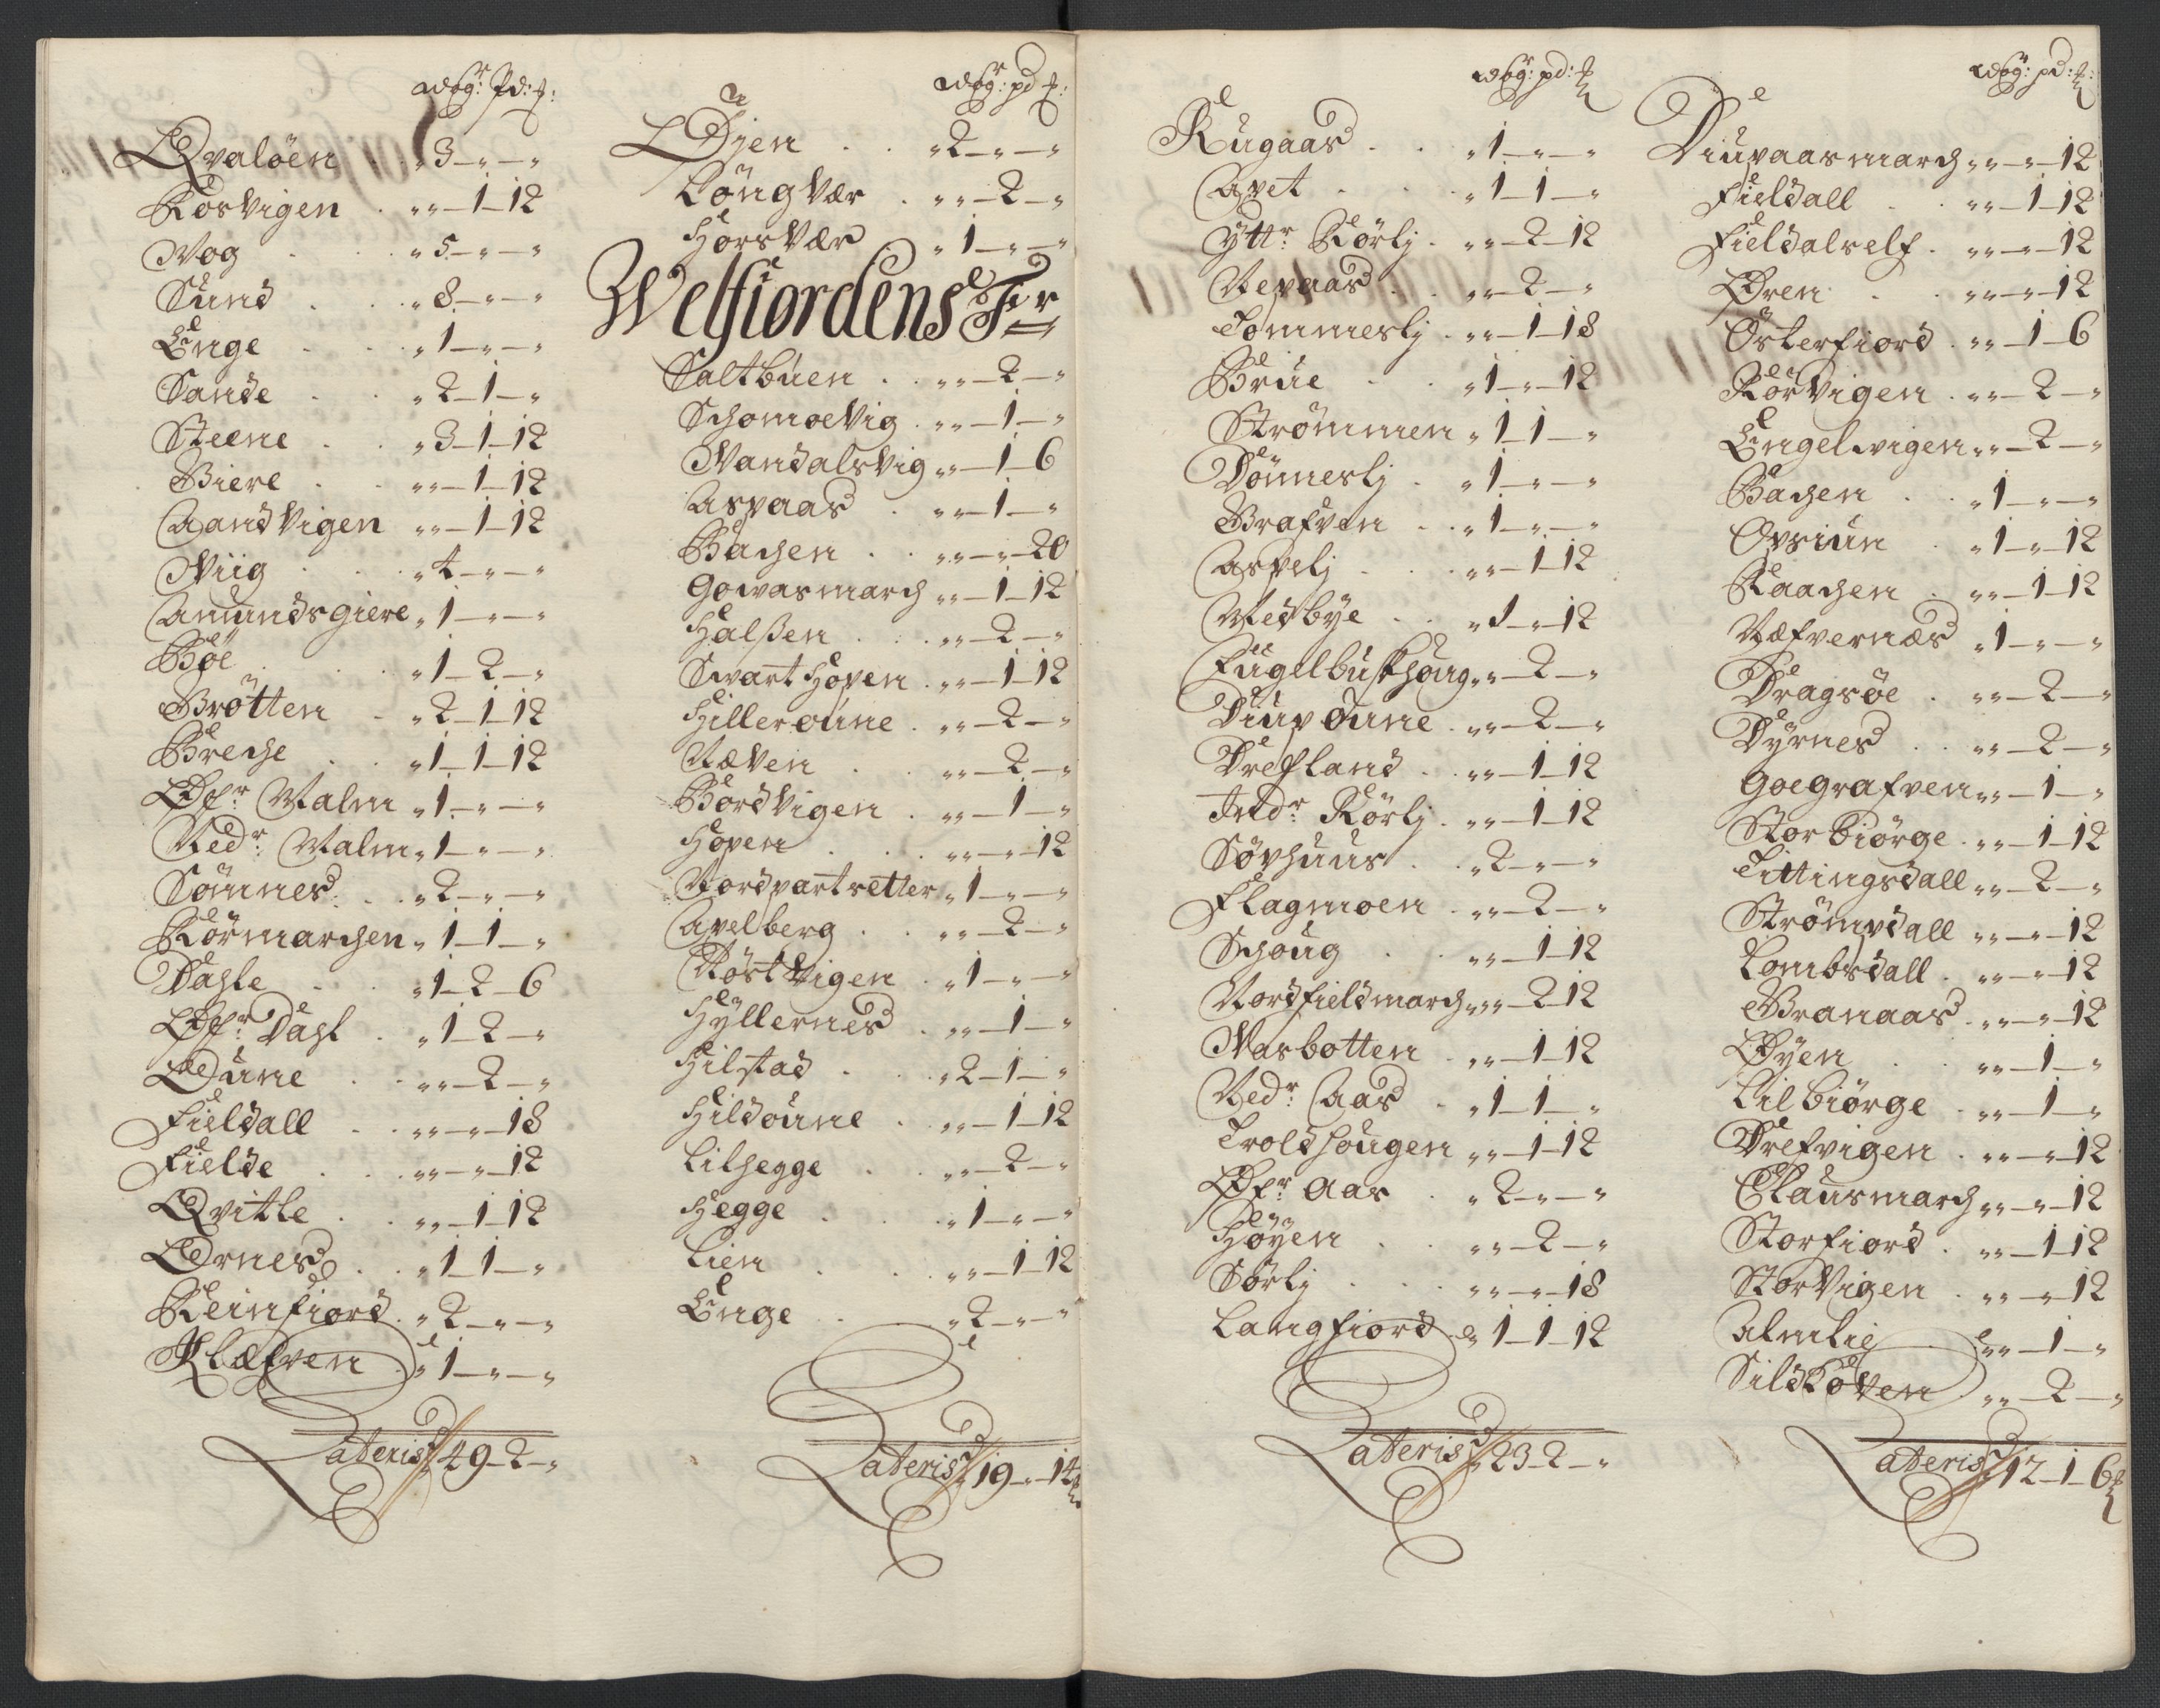 Wog.r Pd: ℔:
Qvaløen . „3-„-„
Rosvigen . „„-1-12
Wog . „5-„-„
Sund . „8-„-„
Enge . „1-„-„
Sande . „2-1-„
Steene . „3-1-12
Biere . „„-1-12
Aandvigen „„-1-12
Wiig . „4-„-„
Amundsgiere „1-„-„
Bøe . „1-2-„
Brøtten . „2-1-12
Breche . „1-1-12
Øf.r Malm „1-„-„
Ned.r Malm „1-„-„
Sømnes . „2-„-„
Rørmarchen „1-1-„
Dahle . „1-2-6
Øf.r Dahl . „1-2-„
Dune . „„-2-„
Fieldall . „„-„-18
Fielde . „„-„-12
Qvitle . „„-1-12
Ørnes . „1-1-„
Reinfiord . „2-„-„
Klæfven . „1-„-„
Lateris „49-2-„
Wog.r pd ℔:
Øjen . . „2-„-„
Longvær . „„-2-„
Horsvær . „1-„-„
Welfiordens Fr
Saltbuen . . „„-2-„
Schomoevig . „„-1-„
Mandalsvig „„-1-6
Aspaas . „„-1-„
Bachen . . „„-„-20
Gowasmarch „„-1-12
Halsen . . „„-2-„
Svarthopen . „„-1-12
Hilleroune . „„-2-„
Næven . „„-2-„
Bordvigen . „„-1-„
Hopen . . „„-„-12
Nordpartretter „1-„-„
Apelberg . . „„-2-„
Røstvigen . „1-„-„
Hyllernes . „„-1-„
Hilstad . . „2-1-„
Hildoune . „„-1-12
Lilhegge . „„-2-„
Hegge . . „1-„-„
Lien . . „„-1-12
Enge . . „2-„-„
Lateris „19-„-14
Wog.r pd: ℔
Rugaas . . „1-„-„
Apet . . „1-1-„
Ytt.r Rørlj . „„-2-12
Nepaas . . „„-2-„
Tommeslj . „„-1-18
Brue . . „1-„-12
Strømmen „1-1-„
Dønneslj . „1-„-„
Brafven . . „1-„-„
Aspelj . . „„-1-12
Medbye . . „1-„-12
Fugelbuskhoug „„-2-„
Diupoune . „„-2-„
Drefland . . „„-1-12
Indr. Rørlj . „„-1-12
Søvhuus . „2-„-„
Flagmoen . „„-2-„
Schoug . „„-1-12
Nordfieldmarch „„-2-12
Masbotten . „„-1-12
Ned.r Aas . „1-1-„
Troldhougen „„-1-12
Øf.r Aas . „2-„-„
Høyen . . „„-2-„
Sørlj . . „„-„-18
Langfiord . „1-1-12
Lateris „23-2-„
Wog.r pd: ℔:
Diupaasmarch „„-„-12
Fieldall . . „„-1-12
Fieldalself . „„-„-12
Øren . . „„-„-12
Østerfiord . „„-1-6
Rørvigen . „„-2-„
Engelvigen „„-2-„
Bachen . . „1-„-„
Opsiun . „1-„-12
Raachen . „„-1-12
Næfvernæs „1-„-„
Dragsøe . „„-2-„
Dyrnes . . „„-2-„
Goegrafven „„-1-„
Storbiørge . „„-1-12
Tittingsdall „„-2-„
Strømpdall „„-„-12
Lombsdall . „„-„-12
Granaas . „„-„-12
Øyen . . „„-1-„
Lilbiørge . „„-1-„
Drefvigen . „„-„-12
Clausmarch „„-„-12
Storfiord . „„-1-12
Storvigen . „„-„-12
Almlie . „„-1-„
Sildhoven . „„-2-„
Lateris „12-1-6℔